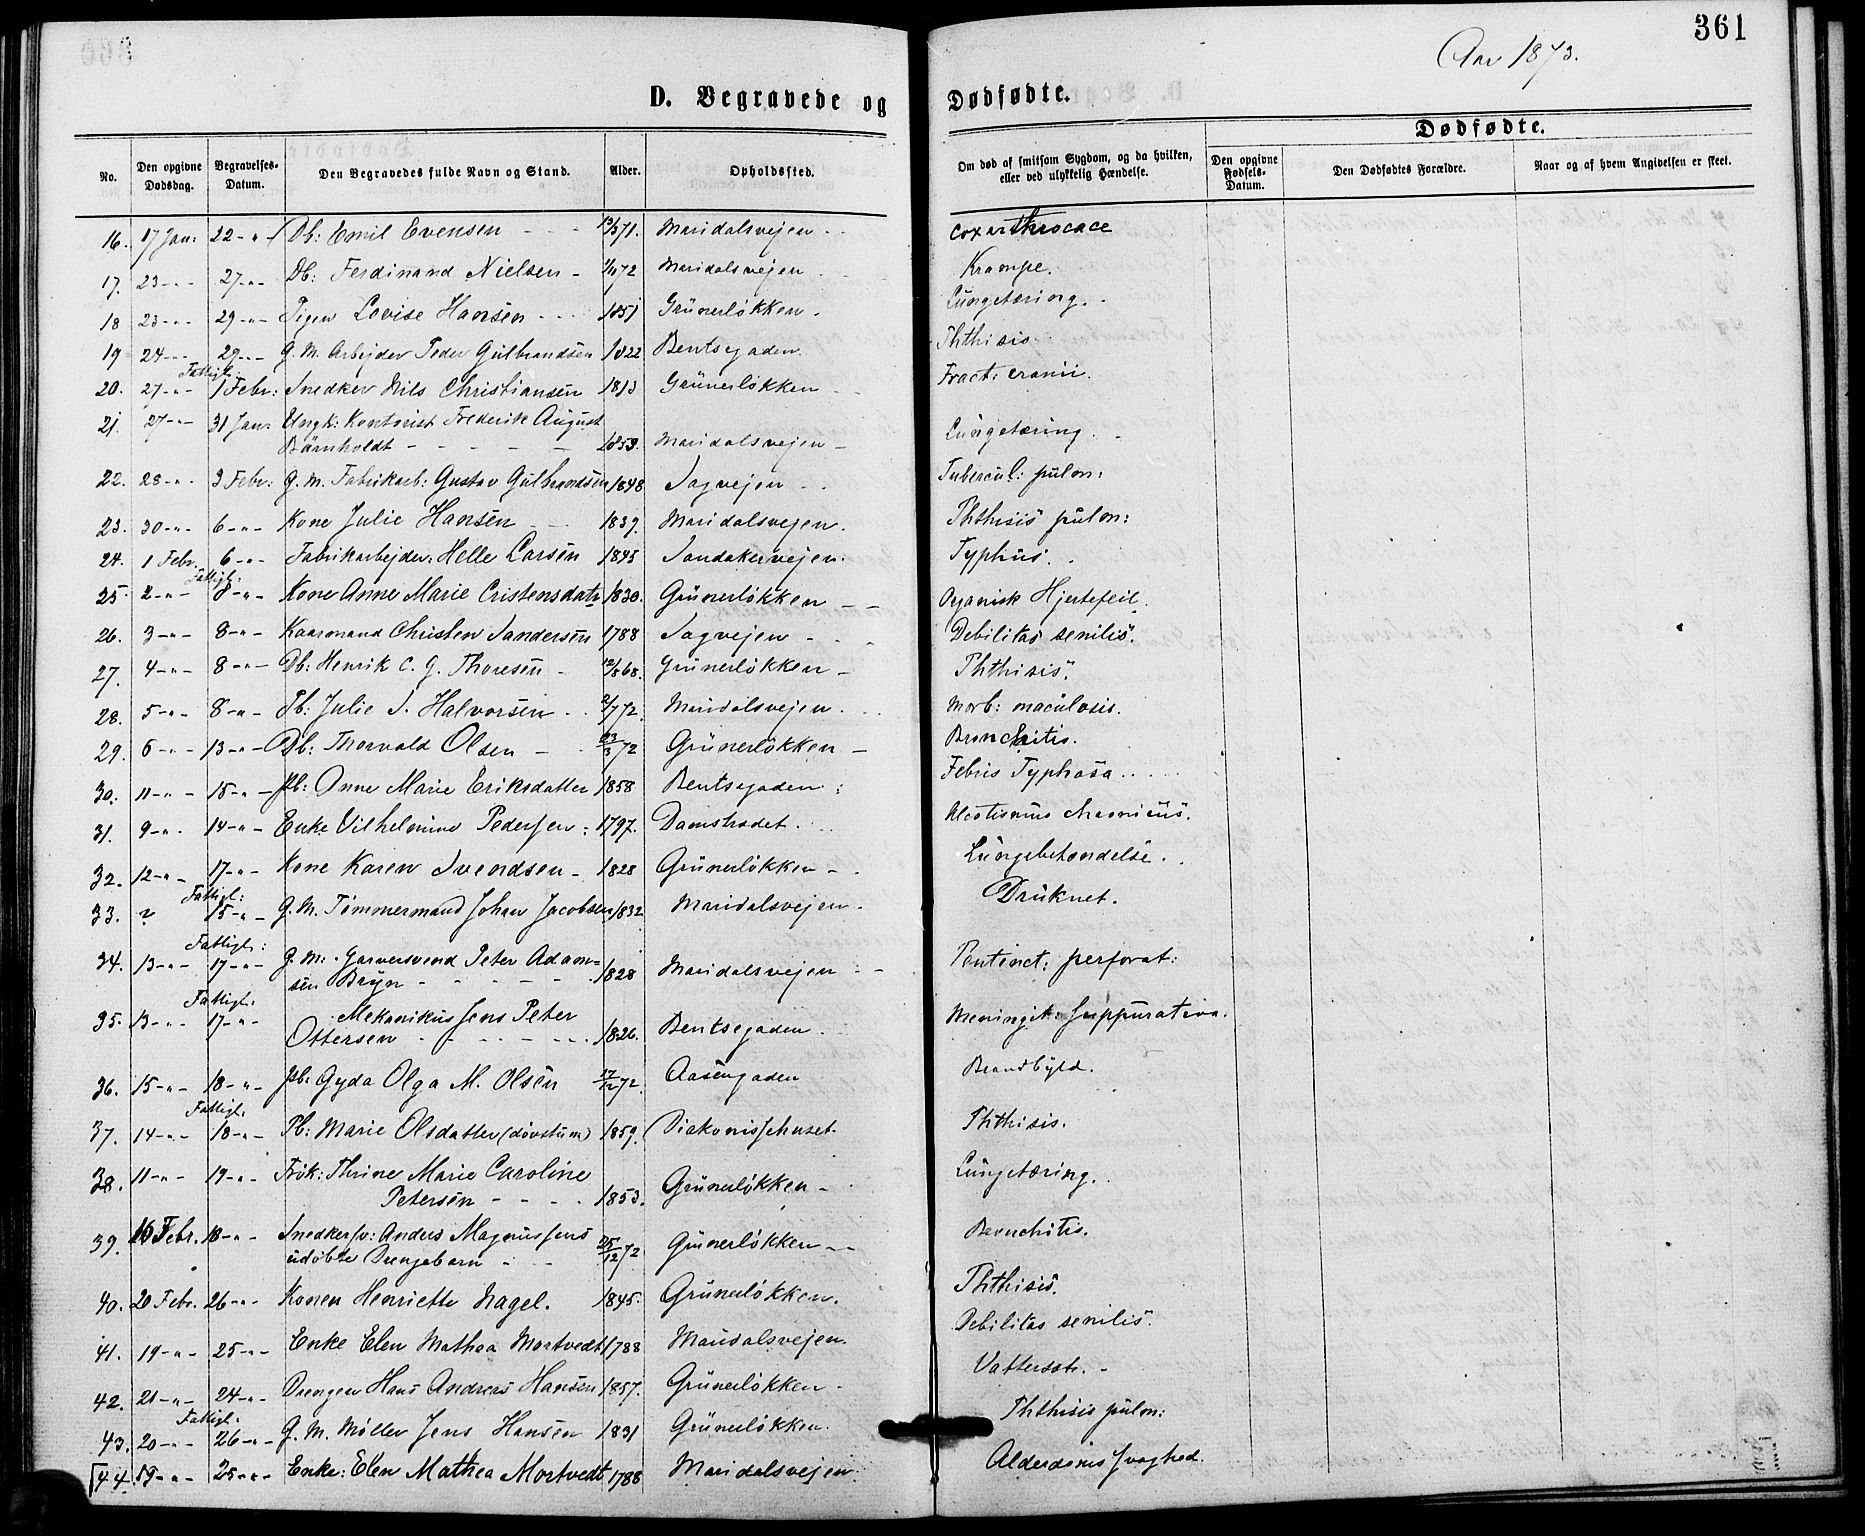 361
Aar 1873.
D. Begravede og Dødfødte.
Dødfødte.
No. Den opgivne Dødsdag. Begravelses-Datum. Den Begravedes fulde Navn og Stand. Alder. Opholdssted. Om død af smitsom Sygdom, og da hvilken, eller ved ulykkelig Hændelse. Den opgivne Fødsels-Datum. Den Dødfødtes Forældre. Naar og af hvem Angivelsen er skeet.
16. 17 Jan: 22-"- Db: Emil Evensen - - - 13/371. Maridalsvejen - - Coxarthrocace
17. 23-"- 27-"- Db: Ferdinand Nielsen - 1/1072 Maridalsvejen. Krampe.
18 23-"- 29-"- Pigen Lovise Hansen - - - 1851 Grünerløkken. Lungetæring.
19 24-"- 29-"- G. M. Arbejder Peder Gulbrandsen 1822 Bentsegaden. Phthisis
Fattigl:
20. 27-"- 1 Febr: Snedker Nils Christiansen 1813 Grünerløkken Fract: cranii.
21. 27-"- 31 Jan: Ungk: Kontorist Frederik August
Barnholdt - - - - - 1853. Maridalsvejen - Lungetæring.
22. 28-"- 3 Febr: G. M. Fabrikarb: Gustav Gulbrandsen 1848 Sagvejen - - Tubercul: pulm:
23. 30-"- 6-"- Kone Julie Hansen - - 1839. Maridalsvejen. Phthisis pulm:
24. 1 Febr. 6-"- Fabrikarbejder: Helle Larsen 1845 Sandakervejen. Typhus.
Fattigl:
25. 2-"- 8-"- Kone Anne Marie Cristensdatr 1830. Grünerløkken - - Organisk Hjertefeil.
26. 3-"- 8-"- Kaarmand Christen Sandersen 1788 Sagvejen - - Debilitas senilis.
27. 4-"- 8-"- Db: Henrik C. G. Thoresen - 12/868. Grünerløkken - Phthisis.
28. 5-"- 8-"- Pb: Julie S. Halvorsen - - 2/772. Maridalsvejen. Morb: maculosis.
29. 6-"- 13-"- Db: Thorvald Olsen - 23/372 Grünerløkken - Bronchitis.
30. 11-"- 15-"- Pb: Anne Marie Eriksdatter 1858 Bentsegaden: Febris Typhosa
31. 9-"- 14-"- Enke Vilhelmine Pedersen: 1797. Damstrædet. Alcolismus chronicus.
32. 12-"- 17-"- Kone Karen Svendsen - 1828 Grünerløkken - Lungebetændelse.
Fattigl:
33. ? 15-"- G. M. Tømmermand Johan Jacobsen 1832 Maridalsvejen. Druknet.
Fattigl:
34. 13-"- 17-"- G. M: Garversvend Peter Adam=
sen Bryn - - - - - 1828 Maridalsvejen - - perforat:
Fattigl:
35. 13-"- 17-"- Mekanikus Jens Peter
Ottersen - - - - - 1826. Bentsegaden. Meningit: suppurativa.
36. 15-"- 18-"- Pb: Gyda Olga M. Olsen 17/1272. Aasengaden Brandbyld.
Fattigl:
37. 14-"- 18-"- Pb: Marie Olsdatter (døvstum) 1859. Diakonissehuset. Phthisis.
38. 11-"- 19-"- Frøk: Thrine Marie Caroline
Petersen - - - - 1853. Grünerløkken - Lungetæring.
39. 16 Febr. 18-"- Snedkersv: Anders Magnussens
udøbte Drengebarn - - 25/1272. Grünerløkken - Bronchitis.
40. 20 Febr. 26-"- Konen Henriette Nagel. 1845. Grünerløkken. Phthisis.
41. 19-"- 25-"- Enke Elen Mathea Mortvedt 1788 Maridalsvejen. Debilitas senilis.
42. 21-"- 24-"- Drengen Hans Andreas Hansen 1857. Grünerløkken - Vattersot. -
Fattigl:
43. 20-"- 26-"- G. M. Møller Jens Hansen 1831 Grünerløkken. Phthisis pulm:
44. 19-"- 25-"- Enke: Elen Mathea Mortvedt 1788 Maridalsvejen. Alderdomssvaghed.